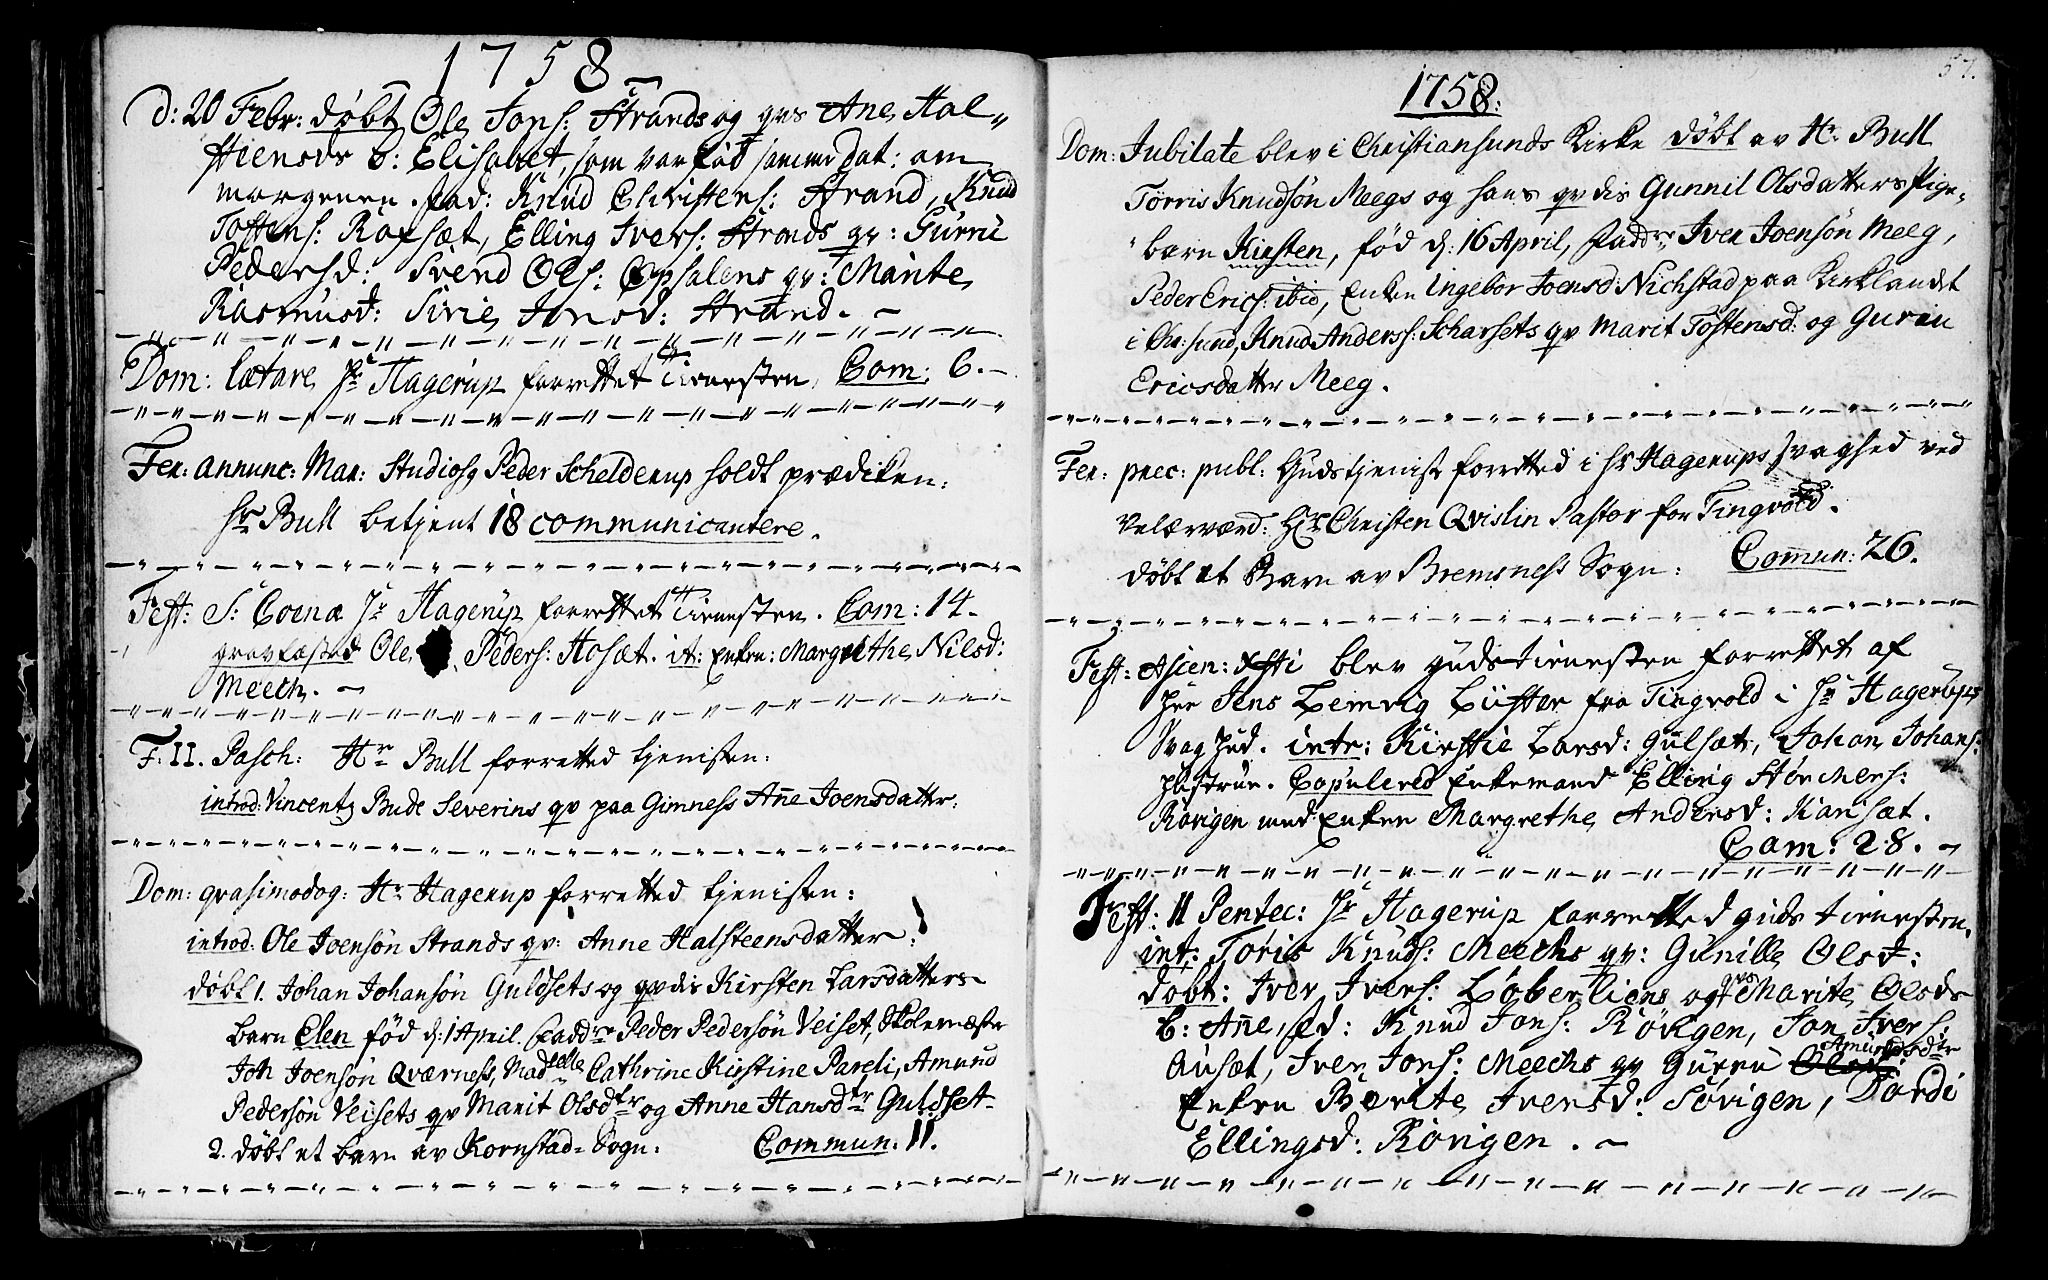 1758
d: 20 Febr: døbt Ole Jons: Strands og qvs Ane Hal-
stiensdr b: Elisabet, som var fød samme dat: om
morgenen. fad: Knud Christens: Strand, Knud
Tostens: Rafsæt, Elling Ivers: Strands qv: Gurru
Pedersd: Svend Ols: Opsalens qv: Marite
Rasmusd: Sirie Jonsd: Strand.
Dom: lætare Hr Hagerup forrettet Tienesten, Com: 6.
Fer: annunc: Mar: Studiosg Peder Schelderup holdt prædiken:
Hr Bull betjent 18 communicantere.
Fest: S: Coenæ Hr Hagerup forrettet Tienesten. Com: 14.
gravfæsted Ole Peders: Hosæt. it: Enken: Margrethe Nilsd:
Meech.
F. II. Pasch: Hr Bull forretted tjenisten:
introd: Vincentz Bude Severins qv paa Gimness Añe Joensdatter:
Dom: qvasimodog: Hr Hagerup forretted tjenisten:
introd: Ole Joensøn Strands qv: Anne Halsteensdatter:
døbt 1. Johan Johansøn Guldsets og qvdis Kirsten Larsdatters
barn Elen fød d: 1 April. Faddre Peder Pedersøn Veiset, Skolemæster
Joh Joensøn Qværness, Madselle Cathrine Kirstine Pareli, Amund
Pedersøn Veisets qv Marit Olsdtr og Anne Hansdtr Guldset
2. døbt et barn av Kornstad-Sogn: Commun: 11.
57.
1758:
Dom: Jubilate blev i Christiansunds Kirke døbt av Hr Bull
Törris Knudsøn Meegs og hans qvdis Gunnil Olsdatters Pige-
barn Kirsten, fød d: 16 April, Faddre Iver Joensøn Meeg,
Peder Erics: ibid, Enken Ingebor Joensd: Nichstad paa Kirklandet
i Chr: sund, Knud Anderss: Scharsets qv Marit Tostensd: og Guren
Ericsdatter Meeg.
Fer: prec: publ: Gudstjenist forretted i Hr Hagerups svaghed ved
Velærværd: Hr Christen Qvislin Pastor for Tingvold.
døbt et Barn av Bremsness Sogn: Commun: 26.
Fest: Ascen: Xsti blev gudstienesten forrettet af
Herr Jens Lemvig Lüster fra Tingvold i Hr Hagerups
Svaghed. intr: Kirstie Larsd: Gulsæt, Johan Johans:
Hustrue. Copulered Enkemand Elling Størkers:
Rövigen med Enken Margrethe Andersd: Karisæt.
Com: 28.
Fest: II Pentec: Hr Hagerup forretted gudstienesten.
int: Toris Knuds: Meechs qv: Gunille Olsd:
døbt: Iver Ivers: Løberliens og qvs Marite Olsds
b: Añe, fd: Knud Jons: Rövigen, Jon Ivers:
Ausæt, Iver Jons: Meechs qv Gurru Amundsdtr
Enken Berite Iversd: Sørigen, Dordi
Ellingsd: Rövigen.